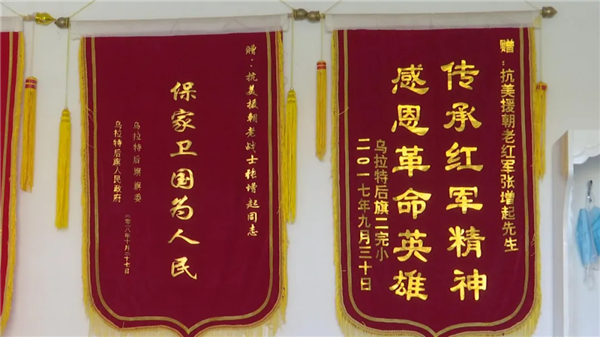 赠：抗美援朝老战士张增起同志
保家卫国为人民
乌拉特后旗旗委
乌拉特后旗人民政府
赠：抗美援朝老红军张增起先生
传承红军精神
感恩革命英雄
乌拉特后旗二完小
二〇一七年九月三十日